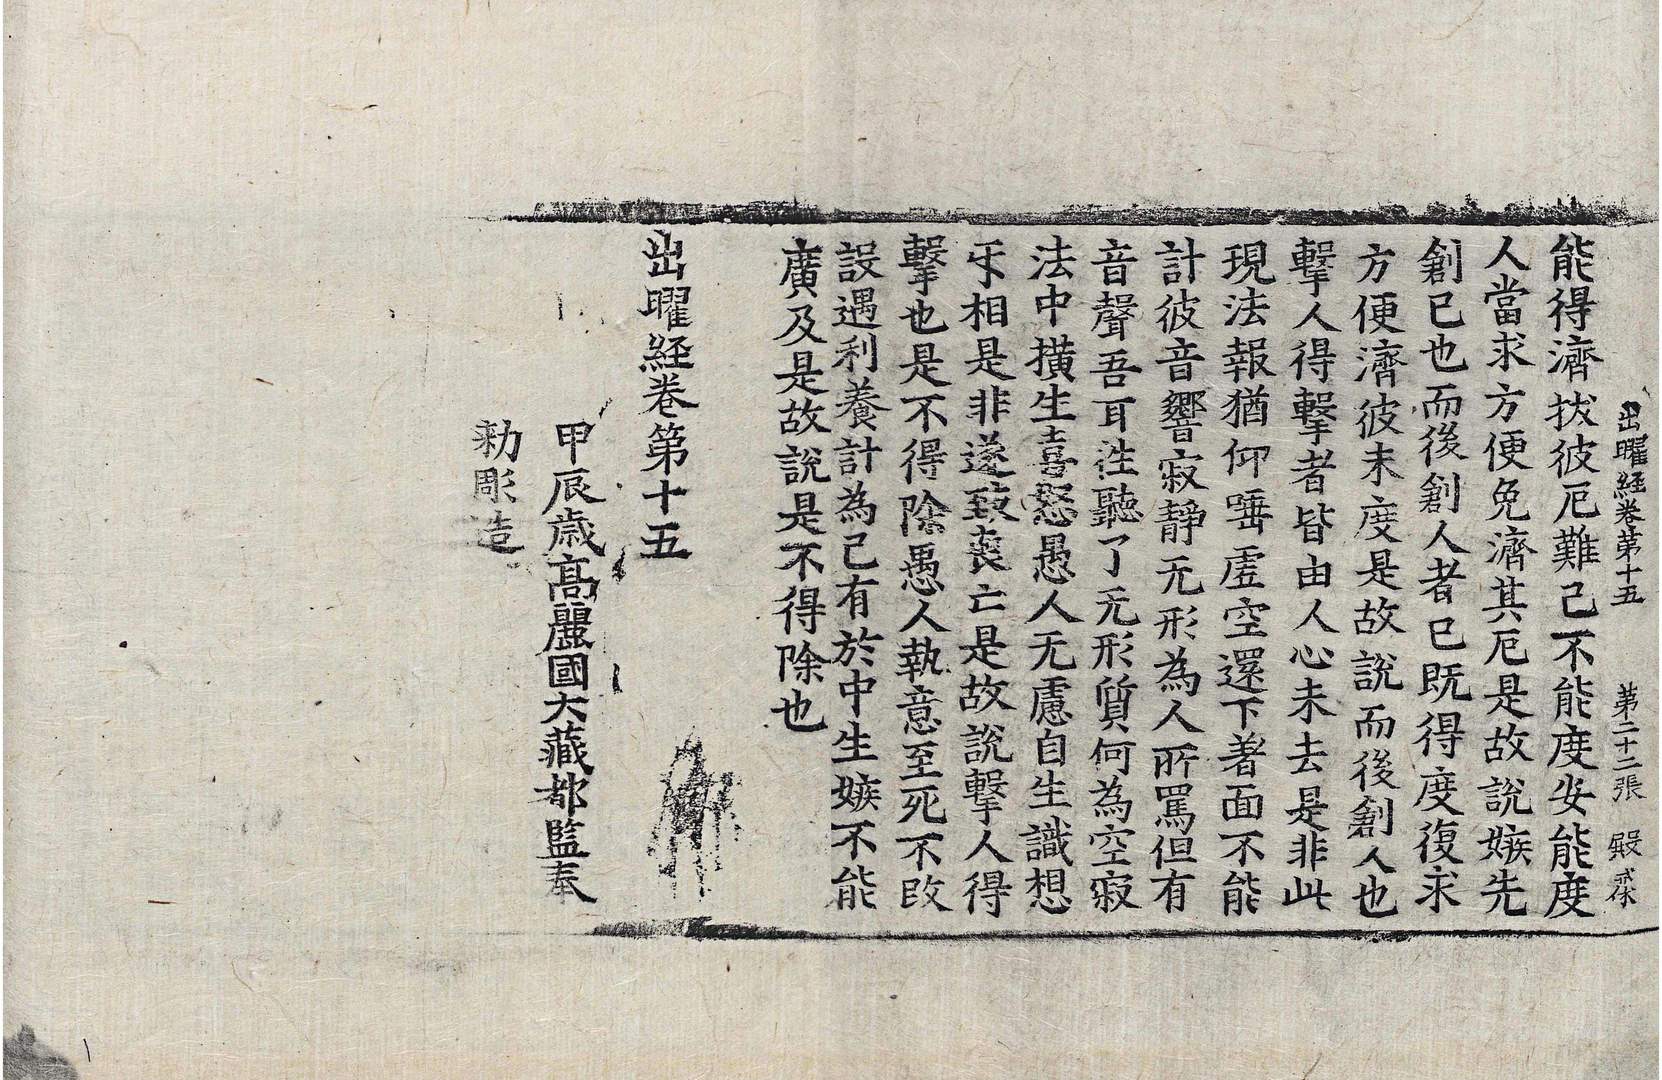 出曜経卷第十五 第二十二張 殿
能得濟拔彼厄難己不能度安能度
人當求方便免濟其厄是故說嫉先
創已也而後創人者已既得度復求
方便濟彼未度是故說而後創人也
擊人得擊者皆由人心未去是非此
現法報猶仰唾虛空還下著面不能
計彼音響寂靜无形為人所罵但有
音聲吾耳往聽了无形質何為空寂
法中撗生喜怒愚人无慮自生識想
㸦相是非遂致喪亡是故說擊人得
擊也是不得除愚人執意至死不改
設遇利養計為己有於中生嫉不能
廣及是故說是不得除也
出曜経卷第十五
甲辰歲髙麗國大藏都監奉
勑彫造